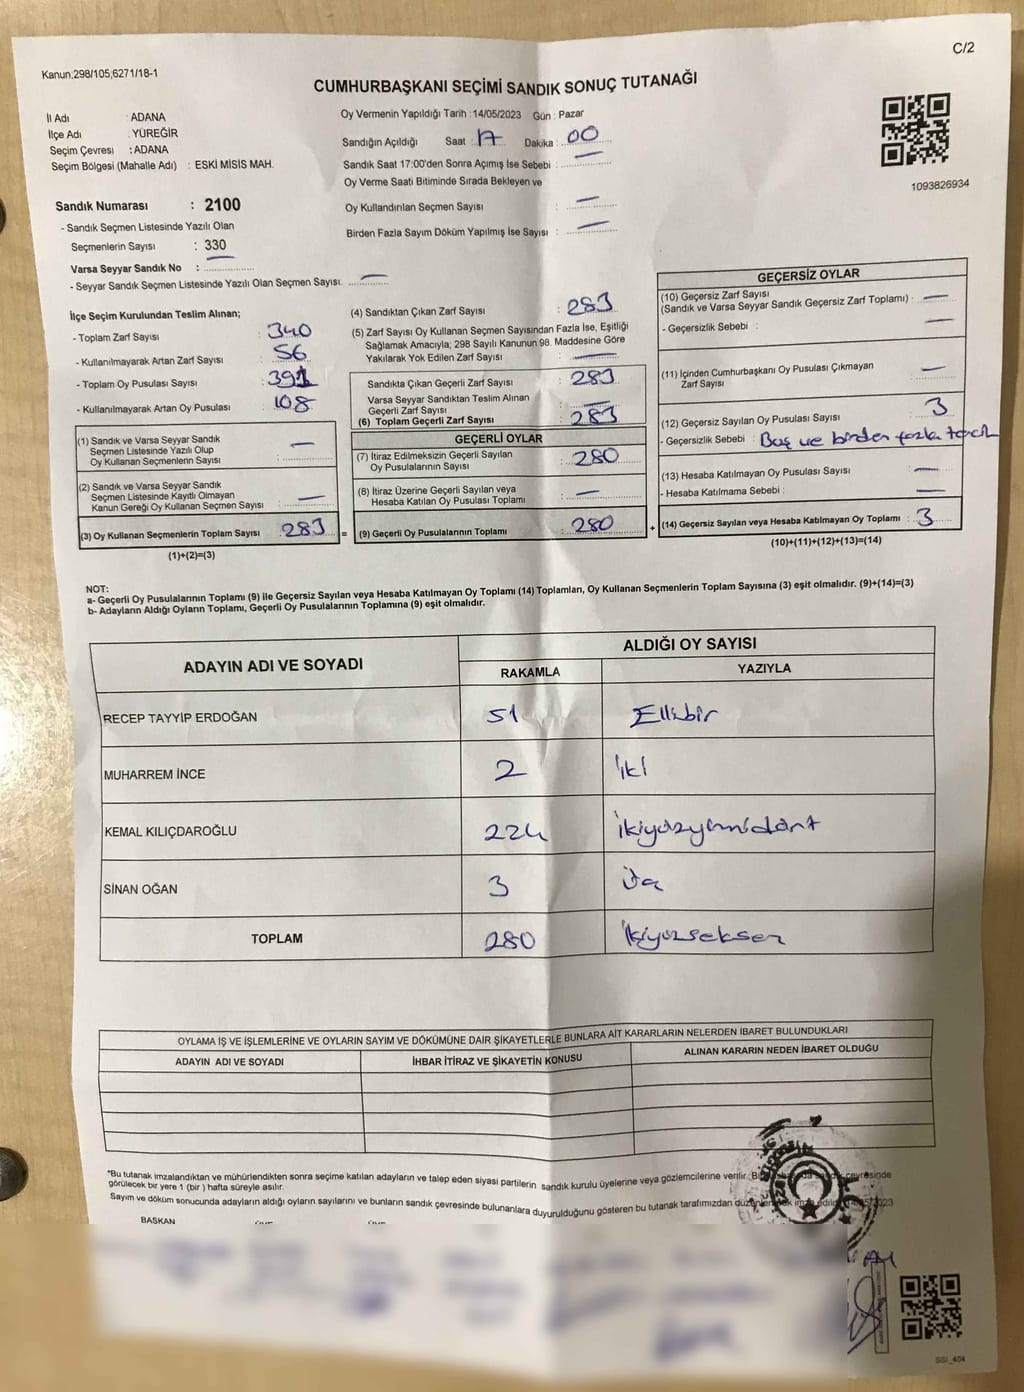 C/2
Kanun;298/105;6271/18-1
CUMHURBAŞKANI SEÇİMİ SANDIK SONUÇ TUTANAĞI
İl Adı : ADANA
İlçe Adı : YÜREĞİR
Seçim Çevresi : ADANA
Seçim Bölgesi (Mahalle Adı) : ESKİ MİSİS MAH.
Oy Vermenin Yapıldığı Tarih : 14/05/2023 Gün : Pazar
Sandığın Açıldığı Saat : 17 Dakika : 00
Sandık Saat 17:00'den Sonra Açımış İse Sebebi : —
Oy Verme Saati Bitiminde Sırada Bekleyen ve
Oy Kullandırılan Seçmen Sayısı : —
Birden Fazla Sayım Döküm Yapılmış İse Sayısı : —
1093826934
Sandık Numarası : 2100
- Sandık Seçmen Listesinde Yazılı Olan
Seçmenlerin Sayısı : 330
Varsa Seyyar Sandık No : —
- Seyyar Sandık Seçmen Listesinde Yazılı Olan Seçmen Sayısı: —
İlçe Seçim Kurulundan Teslim Alınan;
- Toplam Zarf Sayısı : 340
- Kullanılmayarak Artan Zarf Sayısı : 56
- Toplam Oy Pusulası Sayısı : 391
- Kullanılmayarak Artan Oy Pusulası : 108
(1) Sandık ve Varsa Seyyar Sandık
Seçmen Listesinde Yazılı Olup
Oy Kullanan Seçmenlerin Sayısı : —
(2) Sandık ve Varsa Seyyar Sandık
Seçmen Listesinde Kayıtlı Olmayan
Kanun Gereği Oy Kullanan Seçmen Sayısı : —
(3) Oy Kullanan Seçmenlerin Toplam Sayısı : 283 =
(1)+(2)=(3)
(4) Sandıktan Çıkan Zarf Sayısı : 283
(5) Zarf Sayısı Oy Kullanan Seçmen Sayısından Fazla İse, Eşitliği
Sağlamak Amacıyla; 298 Sayılı Kanunun 98. Maddesine Göre
Yakılarak Yok Edilen Zarf Sayısı : —
Sandıkta Çıkan Geçerli Zarf Sayısı : 283
Varsa Seyyar Sandıktan Teslim Alınan
Geçerli Zarf Sayısı : —
(6) Toplam Geçerli Zarf Sayısı : 283
GEÇERLİ OYLAR
(7) İtiraz Edilmeksizin Geçerli Sayılan
Oy Pusulalarının Sayısı : 280
(8) İtiraz Üzerine Geçerli Sayılan veya
Hesaba Katılan Oy Pusulası Toplamı : —
(9) Geçerli Oy Pusulalarının Toplamı : 280 +
GEÇERSİZ OYLAR
(10) Geçersiz Zarf Sayısı
(Sandık ve Varsa Seyyar Sandık Geçersiz Zarf Toplamı) : —
- Geçersizlik Sebebi : —
(11) İçinden Cumhurbaşkanı Oy Pusulası Çıkmayan
Zarf Sayısı : —
(12) Geçersiz Sayılan Oy Pusulası Sayısı : 3
- Geçersizlik Sebebi : Boş ve birden fazla tercih
(13) Hesaba Katılmayan Oy Pusulası Sayısı : —
- Hesaba Katılmama Sebebi : —
(14) Geçersiz Sayılan veya Hesaba Katılmayan Oy Toplamı : 3
(10)+(11)+(12)+(13)=(14)
NOT:
a- Geçerli Oy Pusulalarının Toplamı (9) ile Geçersiz Sayılan veya Hesaba Katılmayan Oy Toplamı (14) Toplamları, Oy Kullanan Seçmenlerin Toplam Sayısına (3) eşit olmalıdır. (9)+(14)=(3)
b- Adayların Aldığı Oyların Toplamı, Geçerli Oy Pusulalarının Toplamına (9) eşit olmalıdır.
ADAYIN ADI VE SOYADI
ALDIĞI OY SAYISI
RAKAMLA YAZIYLA
RECEP TAYYİP ERDOĞAN 51 Ellibir
MUHARREM İNCE 2 İki
KEMAL KILIÇDAROĞLU 224 İkiyüzyirmidört
SİNAN OĞAN 3 Üç
TOPLAM 280 İkiyüzseksen
OYLAMA İŞ VE İŞLEMLERİNE VE OYLARIN SAYIM VE DÖKÜMÜNE DAİR ŞİKAYETLERLE BUNLARA AİT KARARLARIN NELERDEN İBARET BULUNDUKLARI
ADAYIN ADI VE SOYADI İHBAR İTİRAZ VE ŞİKAYETİN KONUSU ALINAN KARARIN NEDEN İBARET OLDUĞU
*Bu tutanak imzalandıktan ve mühürlendikten sonra seçime katılan adayların ve talep eden siyasi partilerin sandık kurulu üyelerine veya gözlemcilerine verilir. çevresinde
görülecek bir yere 1 (bir ) hafta süreyle asılır.
Sayım ve döküm sonucunda adayların aldığı oyların sayılarını ve bunların sandık çevresinde bulunanlara duyurulduğunu gösteren bu tutanak tarafımızdan
BAŞKAN
SSI_404